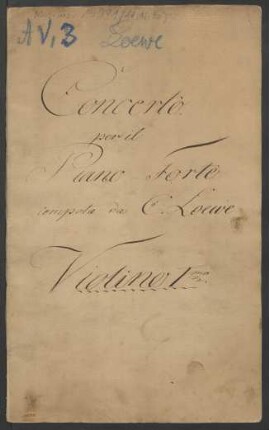 A V, 3 Loewe
Concerto
per il
Piano Forte
composta da C. Loewe
Violino 1mo